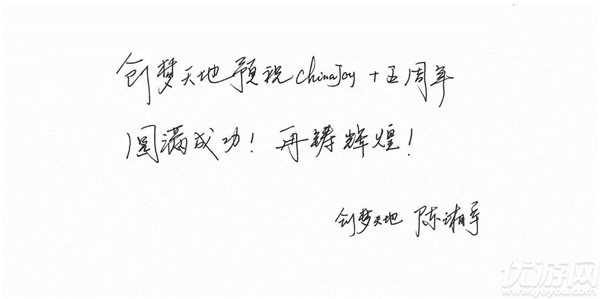 创梦天地预祝chinaJoy十五周年
圆满成功！再铸辉煌！
创梦天地 陈湘宇
优游网
www.yoyou.com